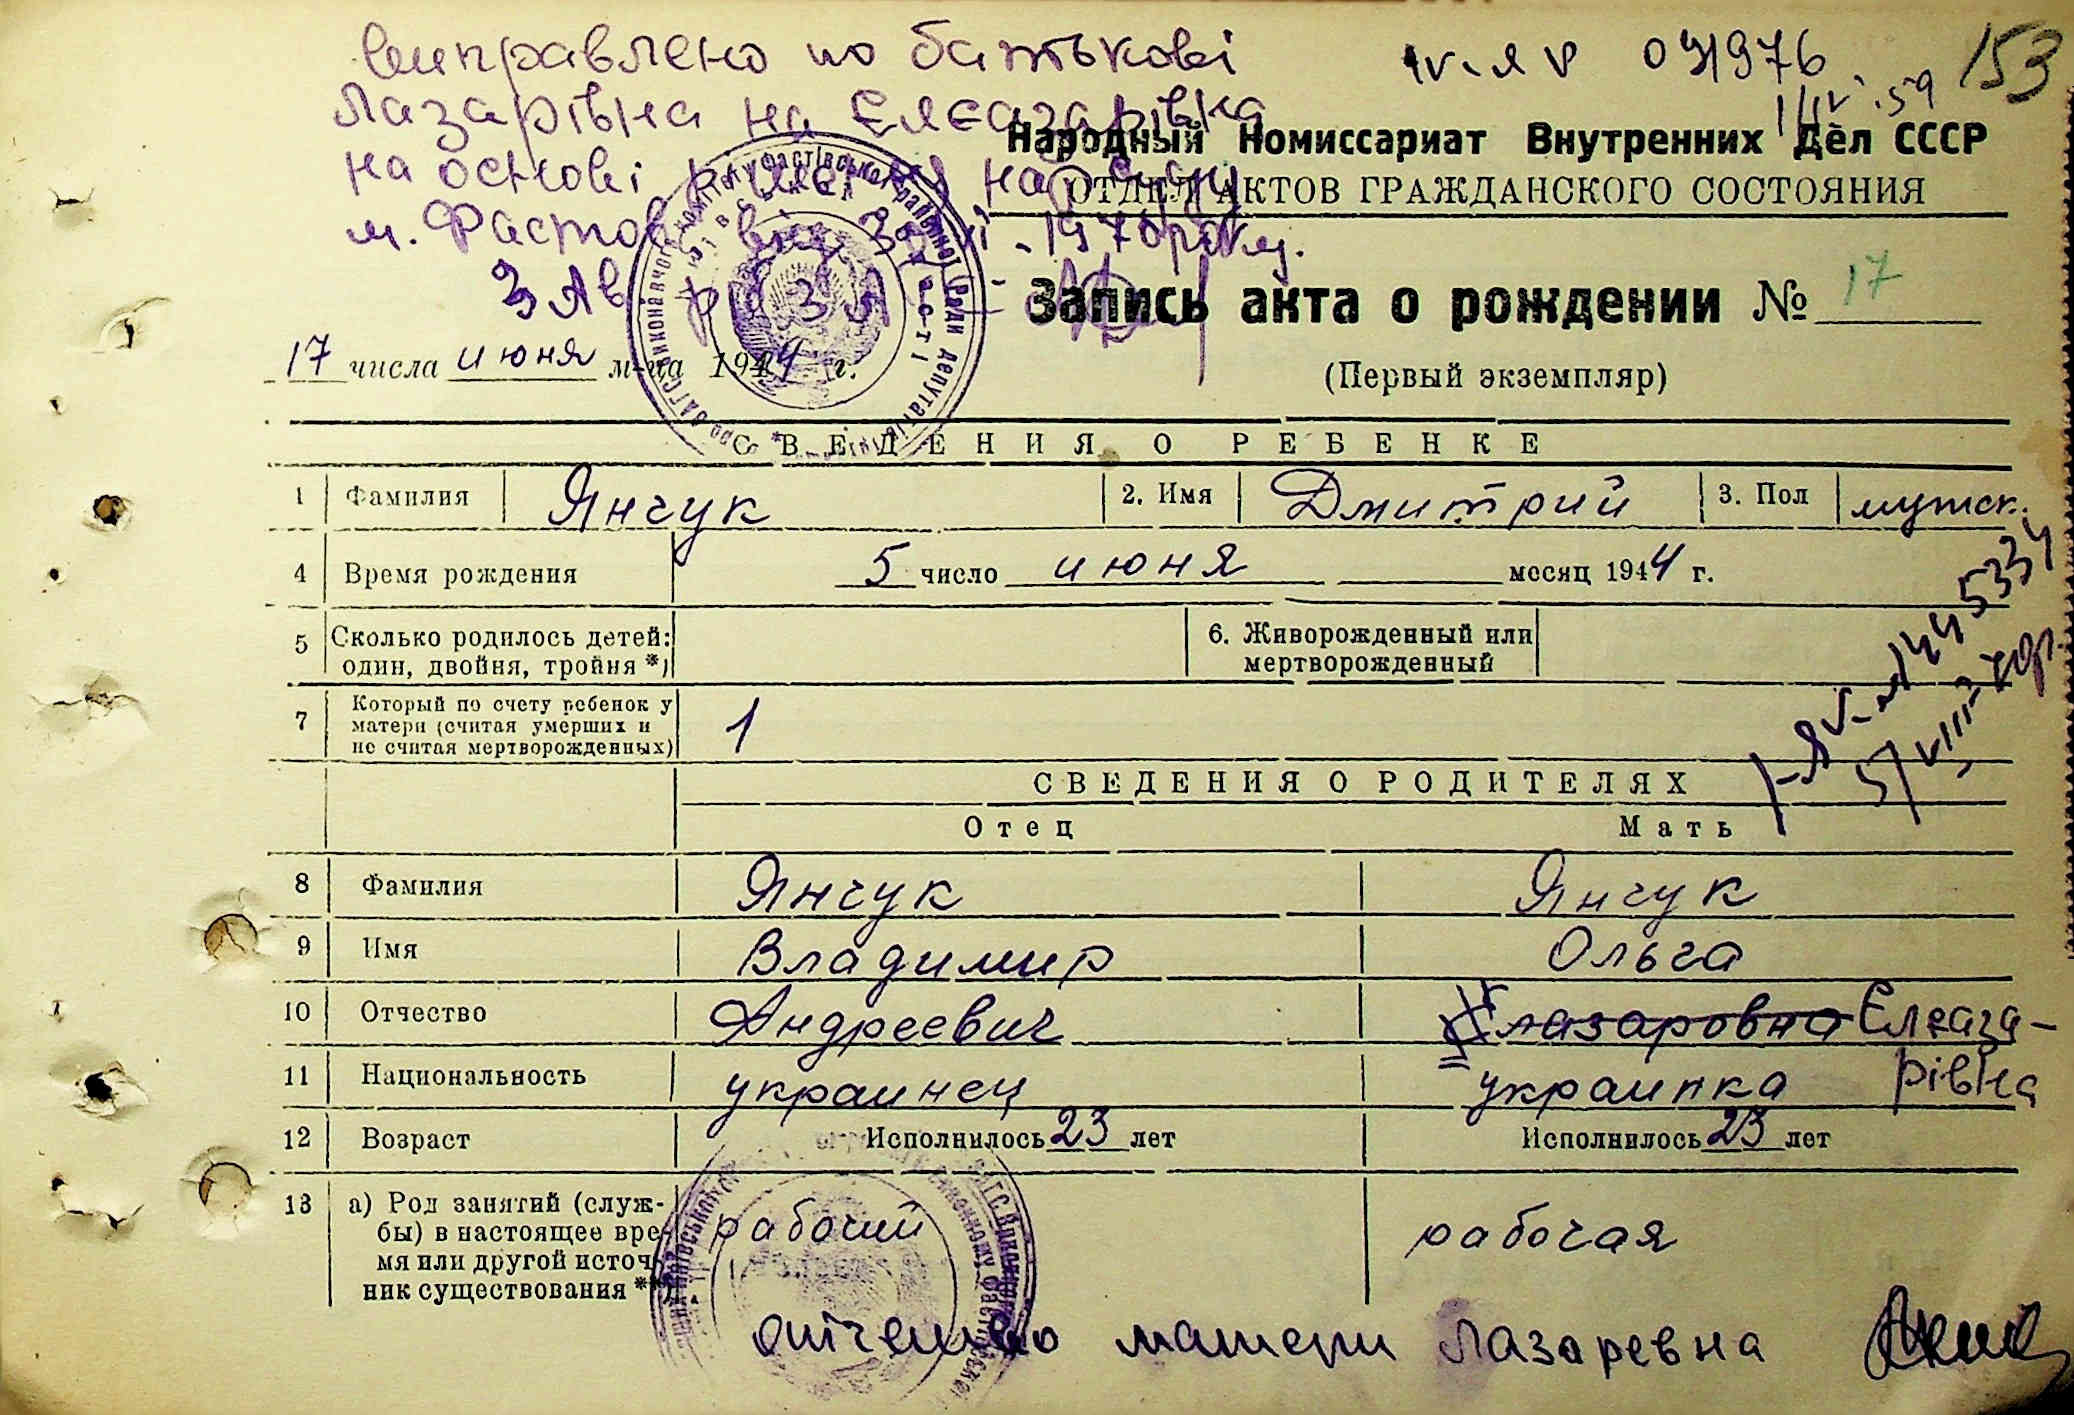 Виправлено по батькові
Лазарівна на Єлєазарівна
на основі рішення нарсуду
м. Фастов від 1970 року.
153
Народный Номиссариат Внутренних Дел СССР
ОТДЕЛ АКТОВ ГРАЖДАНСКОГО СОСТОЯНИЯ
Запись акта о рождении № 17
(Первый экземпляр)
17 числа июня м-ца 1944 г.
СВЕДЕНИЯ О РЕБЕНКЕ
1 Фамилия Янчук 2. Имя Дмитрий 3. Пол мужск.
4 Время рождения 5 число июня месяц 1944 г.
5 Сколько родилось детей: один, двойня, тройня *) 6. Живорожденный или мертворожденный
7 Который по счету ребенок у матери (считая умерших и не считая мертворожденных) 1
СВЕДЕНИЯ О РОДИТЕЛЯХ
Отец Мать
8 Фамилия Янчук Янчук
9 Имя Владимир Ольга
10 Отчество Андреевич Елазаровна Єлєаза-
рівна
11 Национальность украинец украинка
12 Возраст Исполнилось 23 лет Исполнилось 23 лет
13 а) Род занятий (служ-
бы) в настоящее вре-
мя или другой источ-
ник существования **)
рабочий рабочая
отчество матери Лазаревна